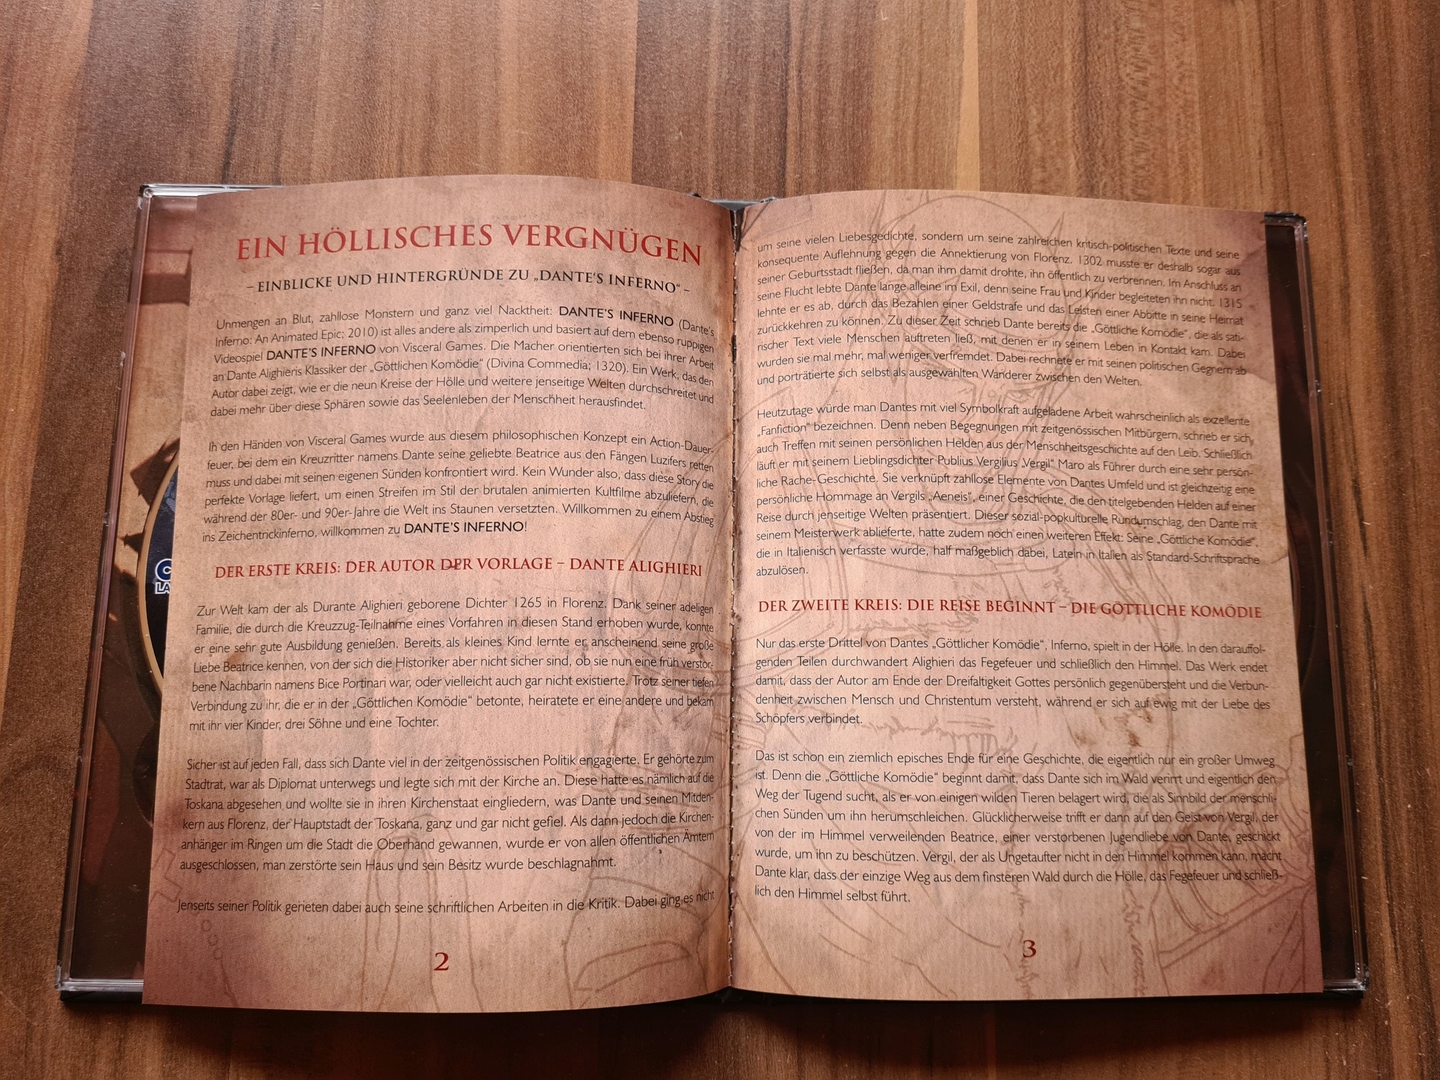 EIN HÖLLISCHES VERGNÜGEN
– EINBLICKE UND HINTERGRÜNDE ZU „DANTE'S INFERNO" –
Unmengen an Blut, zahllose Monstern und ganz viel Nacktheit: DANTE'S INFERNO (Dante's
Inferno: An Animated Epic; 2010) ist alles andere als zimperlich und basiert auf dem ebenso ruppigen
Videospiel DANTE'S INFERNO von Visceral Games. Die Macher orientierten sich bei ihrer Arbeit
an Dante Alighieris Klassiker der „Göttlichen Komödie" (Divina Commedia; 1320). Ein Werk, das den
Autor dabei zeigt, wie er die neun Kreise der Hölle und weitere jenseitige Welten durchschreitet und
dabei mehr über diese Sphären sowie das Seelenleben der Menschheit herausfindet.
In den Händen von Visceral Games wurde aus diesem philosophischen Konzept ein Action-Dauer-
feuer, bei dem ein Kreuzritter namens Dante seine geliebte Beatrice aus den Fängen Luzifers retten
muss und dabei mit seinen eigenen Sünden konfrontiert wird. Kein Wunder also, dass diese Story die
perfekte Vorlage liefert, um einen Streifen im Stil der brutalen animierten Kultfilme abzuliefern, die
während der 80er- und 90er-Jahre die Welt ins Staunen versetzten. Willkommen zu einem Abstieg
ins Zeichentrickinferno, willkommen zu DANTE'S INFERNO!
DER ERSTE KREIS: DER AUTOR DER VORLAGE – DANTE ALIGHIERI
Zur Welt kam der als Durante Alighieri geborene Dichter 1265 in Florenz. Dank seiner adeligen
Familie, die durch die Kreuzzug-Teilnahme eines Vorfahren in diesen Stand erhoben wurde, konnte
er eine sehr gute Ausbildung genießen. Bereits als kleines Kind lernte er anscheinend seine große
Liebe Beatrice kennen, von der sich die Historiker aber nicht sicher sind, ob sie nun eine früh verstor-
bene Nachbarin namens Bice Portinari war, oder vielleicht auch gar nicht existierte. Trotz seiner tiefen
Verbindung zu ihr, die er in der „Göttlichen Komödie" betonte, heiratete er eine andere und bekam
mit ihr vier Kinder, drei Söhne und eine Tochter.
Sicher ist auf jeden Fall, dass sich Dante viel in der zeitgenössischen Politik engagierte. Er gehörte zum
Stadtrat, war als Diplomat unterwegs und legte sich mit der Kirche an. Diese hatte es nämlich auf die
Toskana abgesehen und wollte sie in ihren Kirchenstaat eingliedern, was Dante und seinen Mitden-
kern aus Florenz, der Hauptstadt der Toskana, ganz und gar nicht gefiel. Als dann jedoch die Kirchen-
anhänger im Ringen um die Stadt die Oberhand gewannen, wurde er von allen öffentlichen Ämtern
ausgeschlossen, man zerstörte sein Haus und sein Besitz wurde beschlagnahmt.
Jenseits seiner Politik gerieten dabei auch seine schriftlichen Arbeiten in die Kritik. Dabei ging es nicht
2
um seine vielen Liebesgedichte, sondern um seine zahlreichen kritisch-politischen Texte und seine
konsequente Auflehnung gegen die Annektierung von Florenz. 1302 musste er deshalb sogar aus
seiner Geburtsstadt fließen, da man ihm damit drohte, ihn öffentlich zu verbrennen. Im Anschluss an
seine Flucht lebte Dante lange alleine im Exil, denn seine Frau und Kinder begleiteten ihn nicht. 1315
lehnte er es ab, durch das Bezahlen einer Geldstrafe und das Leisten einer Abbitte in seine Heimat
zurückkehren zu können. Zu dieser Zeit schrieb Dante bereits die „Göttliche Komödie", die als sati-
rischer Text viele Menschen auftreten ließ, mit denen er in seinem Leben in Kontakt kam. Dabei
wurden sie mal mehr, mal weniger verfremdet. Dabei rechnete er mit seinen politischen Gegnern ab
und porträtierte sich selbst als ausgewählten Wanderer zwischen den Welten.
Heutzutage würde man Dantes mit viel Symbolkraft aufgeladene Arbeit wahrscheinlich als exzellente
„Fanfiction" bezeichnen. Denn neben Begegnungen mit zeitgenössischen Mitbürgern, schrieb er sich
auch Treffen mit seinen persönlichen Helden aus der Menschheitsgeschichte auf den Leib. Schließlich
läuft er mit seinem Lieblingsdichter Publius Vergilius „Vergil" Maro als Führer durch eine sehr persön-
liche Rache-Geschichte. Sie verknüpft zahllose Elemente von Dantes Umfeld und ist gleichzeitig eine
persönliche Hommage an Vergils „Aeneis", einer Geschichte, die den titelgebenden Helden auf einer
Reise durch jenseitige Welten präsentiert. Dieser sozial-popkulturelle Rundumschlag, den Dante mit
seinem Meisterwerk ablieferte, hatte zudem noch einen weiteren Effekt: Seine „Göttliche Komödie",
die in Italienisch verfasste wurde, half maßgeblich dabei, Latein in Italien als Standard-Schriftsprache
abzulösen.
DER ZWEITE KREIS: DIE REISE BEGINNT – DIE GÖTTLICHE KOMÖDIE
Nur das erste Drittel von Dantes „Göttlicher Komödie", Inferno, spielt in der Hölle. In den darauffol-
genden Teilen durchwandert Alighieri das Fegefeuer und schließlich den Himmel. Das Werk endet
damit, dass der Autor am Ende der Dreifaltigkeit Gottes persönlich gegenübersteht und die Verbun-
denheit zwischen Mensch und Christentum versteht, während er sich auf ewig mit der Liebe des
Schöpfers verbindet.
Das ist schon ein ziemlich episches Ende für eine Geschichte, die eigentlich nur ein großer Umweg
ist. Denn die „Göttliche Komödie" beginnt damit, dass Dante sich im Wald verirrt und eigentlich den
Weg der Tugend sucht, als er von einigen wilden Tieren belagert wird, die als Sinnbild der menschli-
chen Sünden um ihn herumschleichen. Glücklicherweise trifft er dann auf den Geist von Vergil, der
von der im Himmel verweilenden Beatrice, einer verstorbenen Jugendliebe von Dante, geschickt
wurde, um ihn zu beschützen. Vergil, der als Ungetaufter nicht in den Himmel kommen kann, macht
Dante klar, dass der einzige Weg aus dem finsteren Wald durch die Hölle, das Fegefeuer und schließ-
lich den Himmel selbst führt.
3